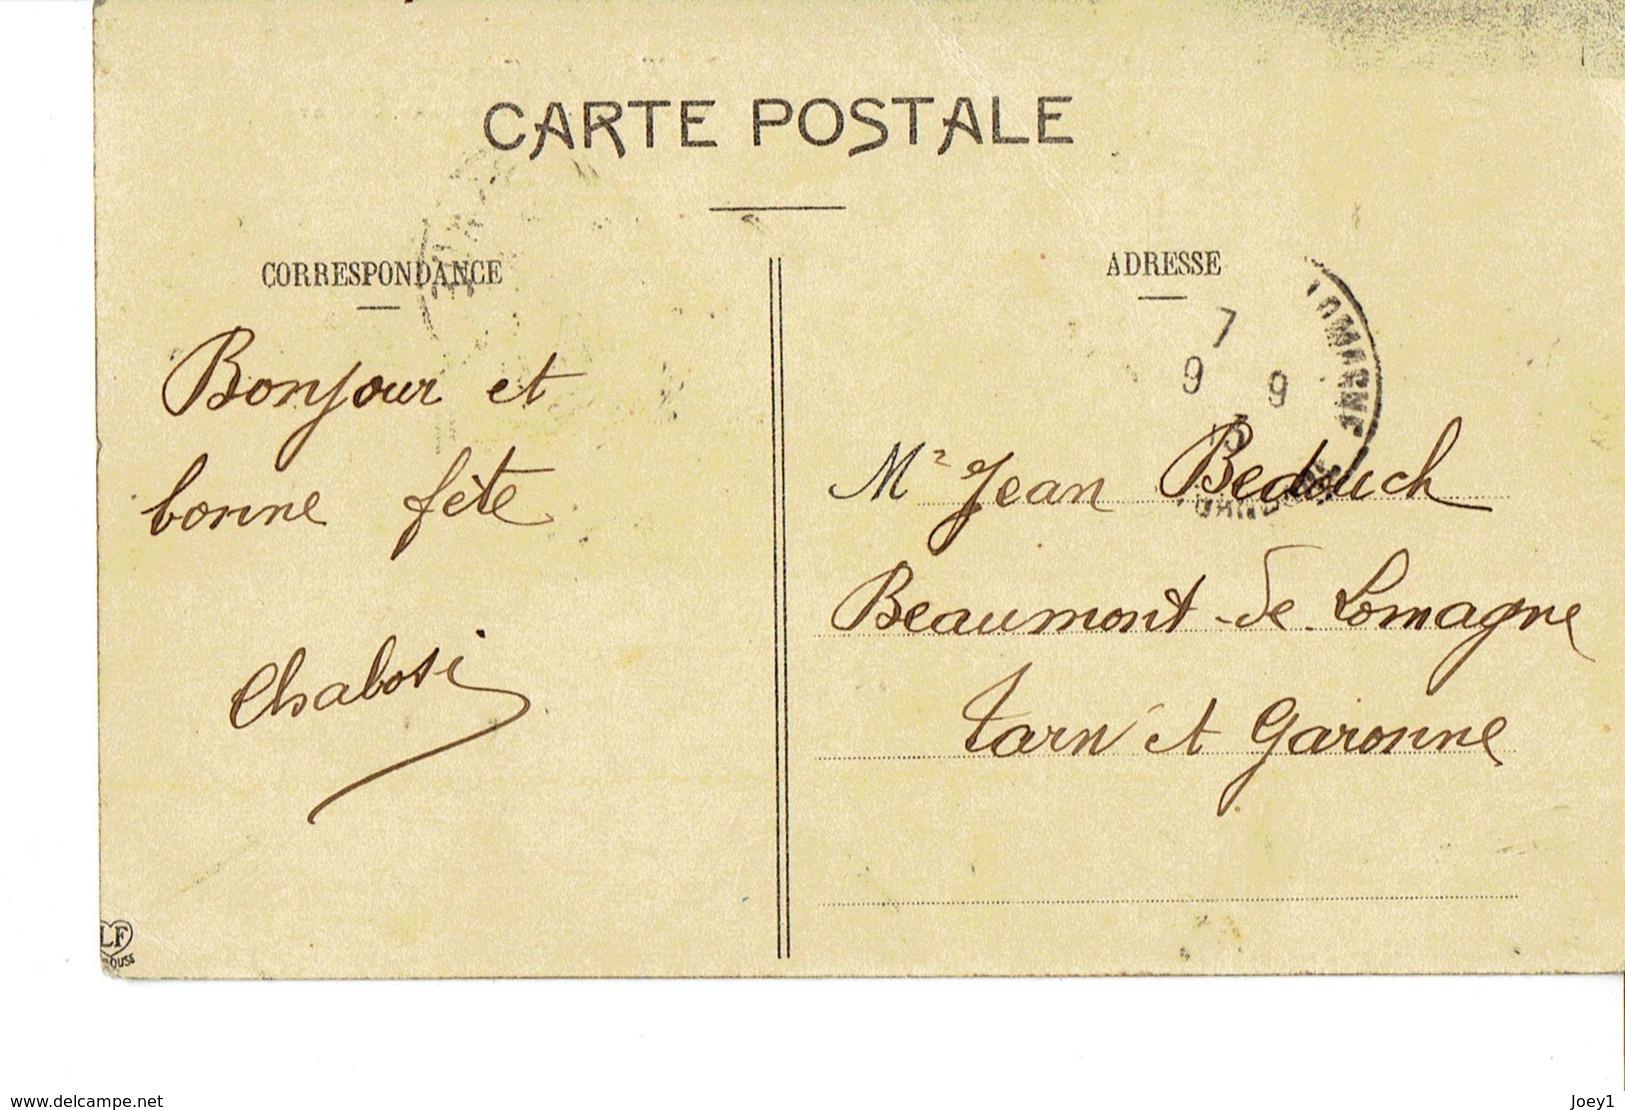 CARTE POSTALE
CORRESPONDANCE
ADRESSE
Bonjour et
bonne fête
Chabosi
7
9 9
LOMAGNE
Mr Jean Bedouch
Beaumont-de-Lomagne
Tarn et Garonne
LF
www.delcampe.net
Joey1